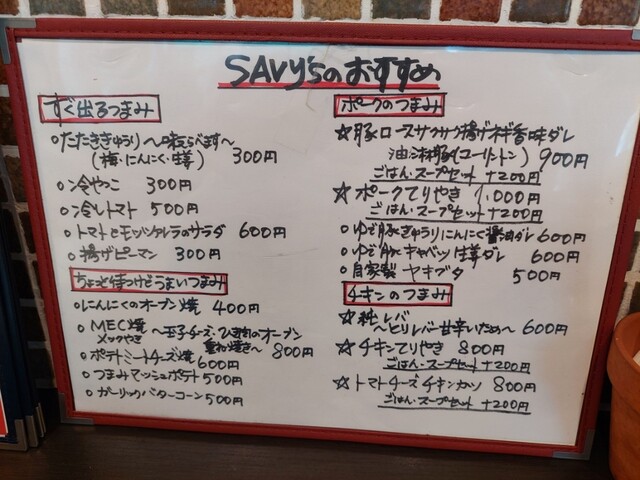 SAVY'sのおすすめ
すぐ出るつまみ
○たたききゅうり〜味えらべます〜
(梅・にんにく・生姜) 300円
○冷やっこ 300円
○冷しトマト 500円
○トマトとモッツァレラのサラダ 600円
○揚げピーマン 300円
ちょっと待つけどうまいつまみ
○にんにくのオーブン焼 400円
○MEC焼 〜玉子チーズ・ひき肉のオーブン
メックやき 重ね焼き〜 800円
○ポテトミートチーズ焼 600円
○つまみマッシュポテト 500円
○ガーリックバターコーン 500円
ポークのつまみ
☆豚ロースサクサク揚げネギ香味ダレ
油淋豚(ユーリートン) 900円
ごはん・スープセット +200円
☆ポークてりやき 1,000円
ごはん・スープセット +200円
○ゆで豚きゅうりにんにく醤油ダレ 600円
○ゆで豚キャベツ生姜ダレ 600円
○自家製ヤキブタ 500円
チキンのつまみ
☆純レバ
〜とりレバー甘辛いため〜 600円
☆チキンてりやき 800円
ごはん・スープセット +200円
☆トマトチーズチキンカツ 800円
ごはん・スープセット +200円